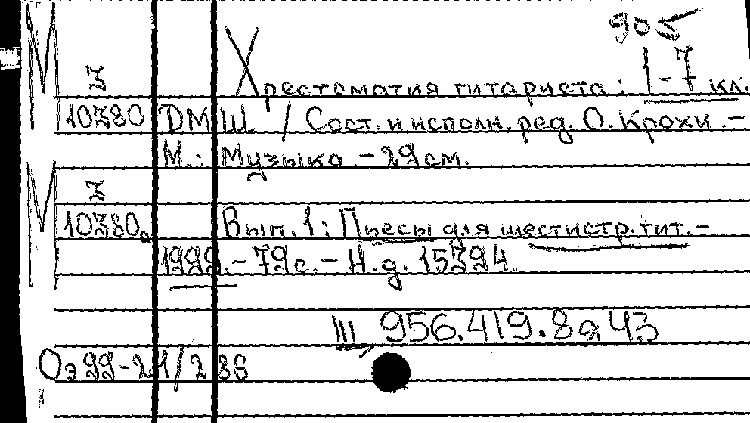 905
М З Хрестоматия гитариста: 1-7 кл.
10380 ДМШ / Сост. и исполн. ред. О. Крохи. -
М.: Музыка - 29 см.
М З
10380а Вып. 1: Пьесы для шестистр. гит. -
1999. - 79 с. - Н.д. 15394
III 956.419.8я43
Оэ 99-21/286